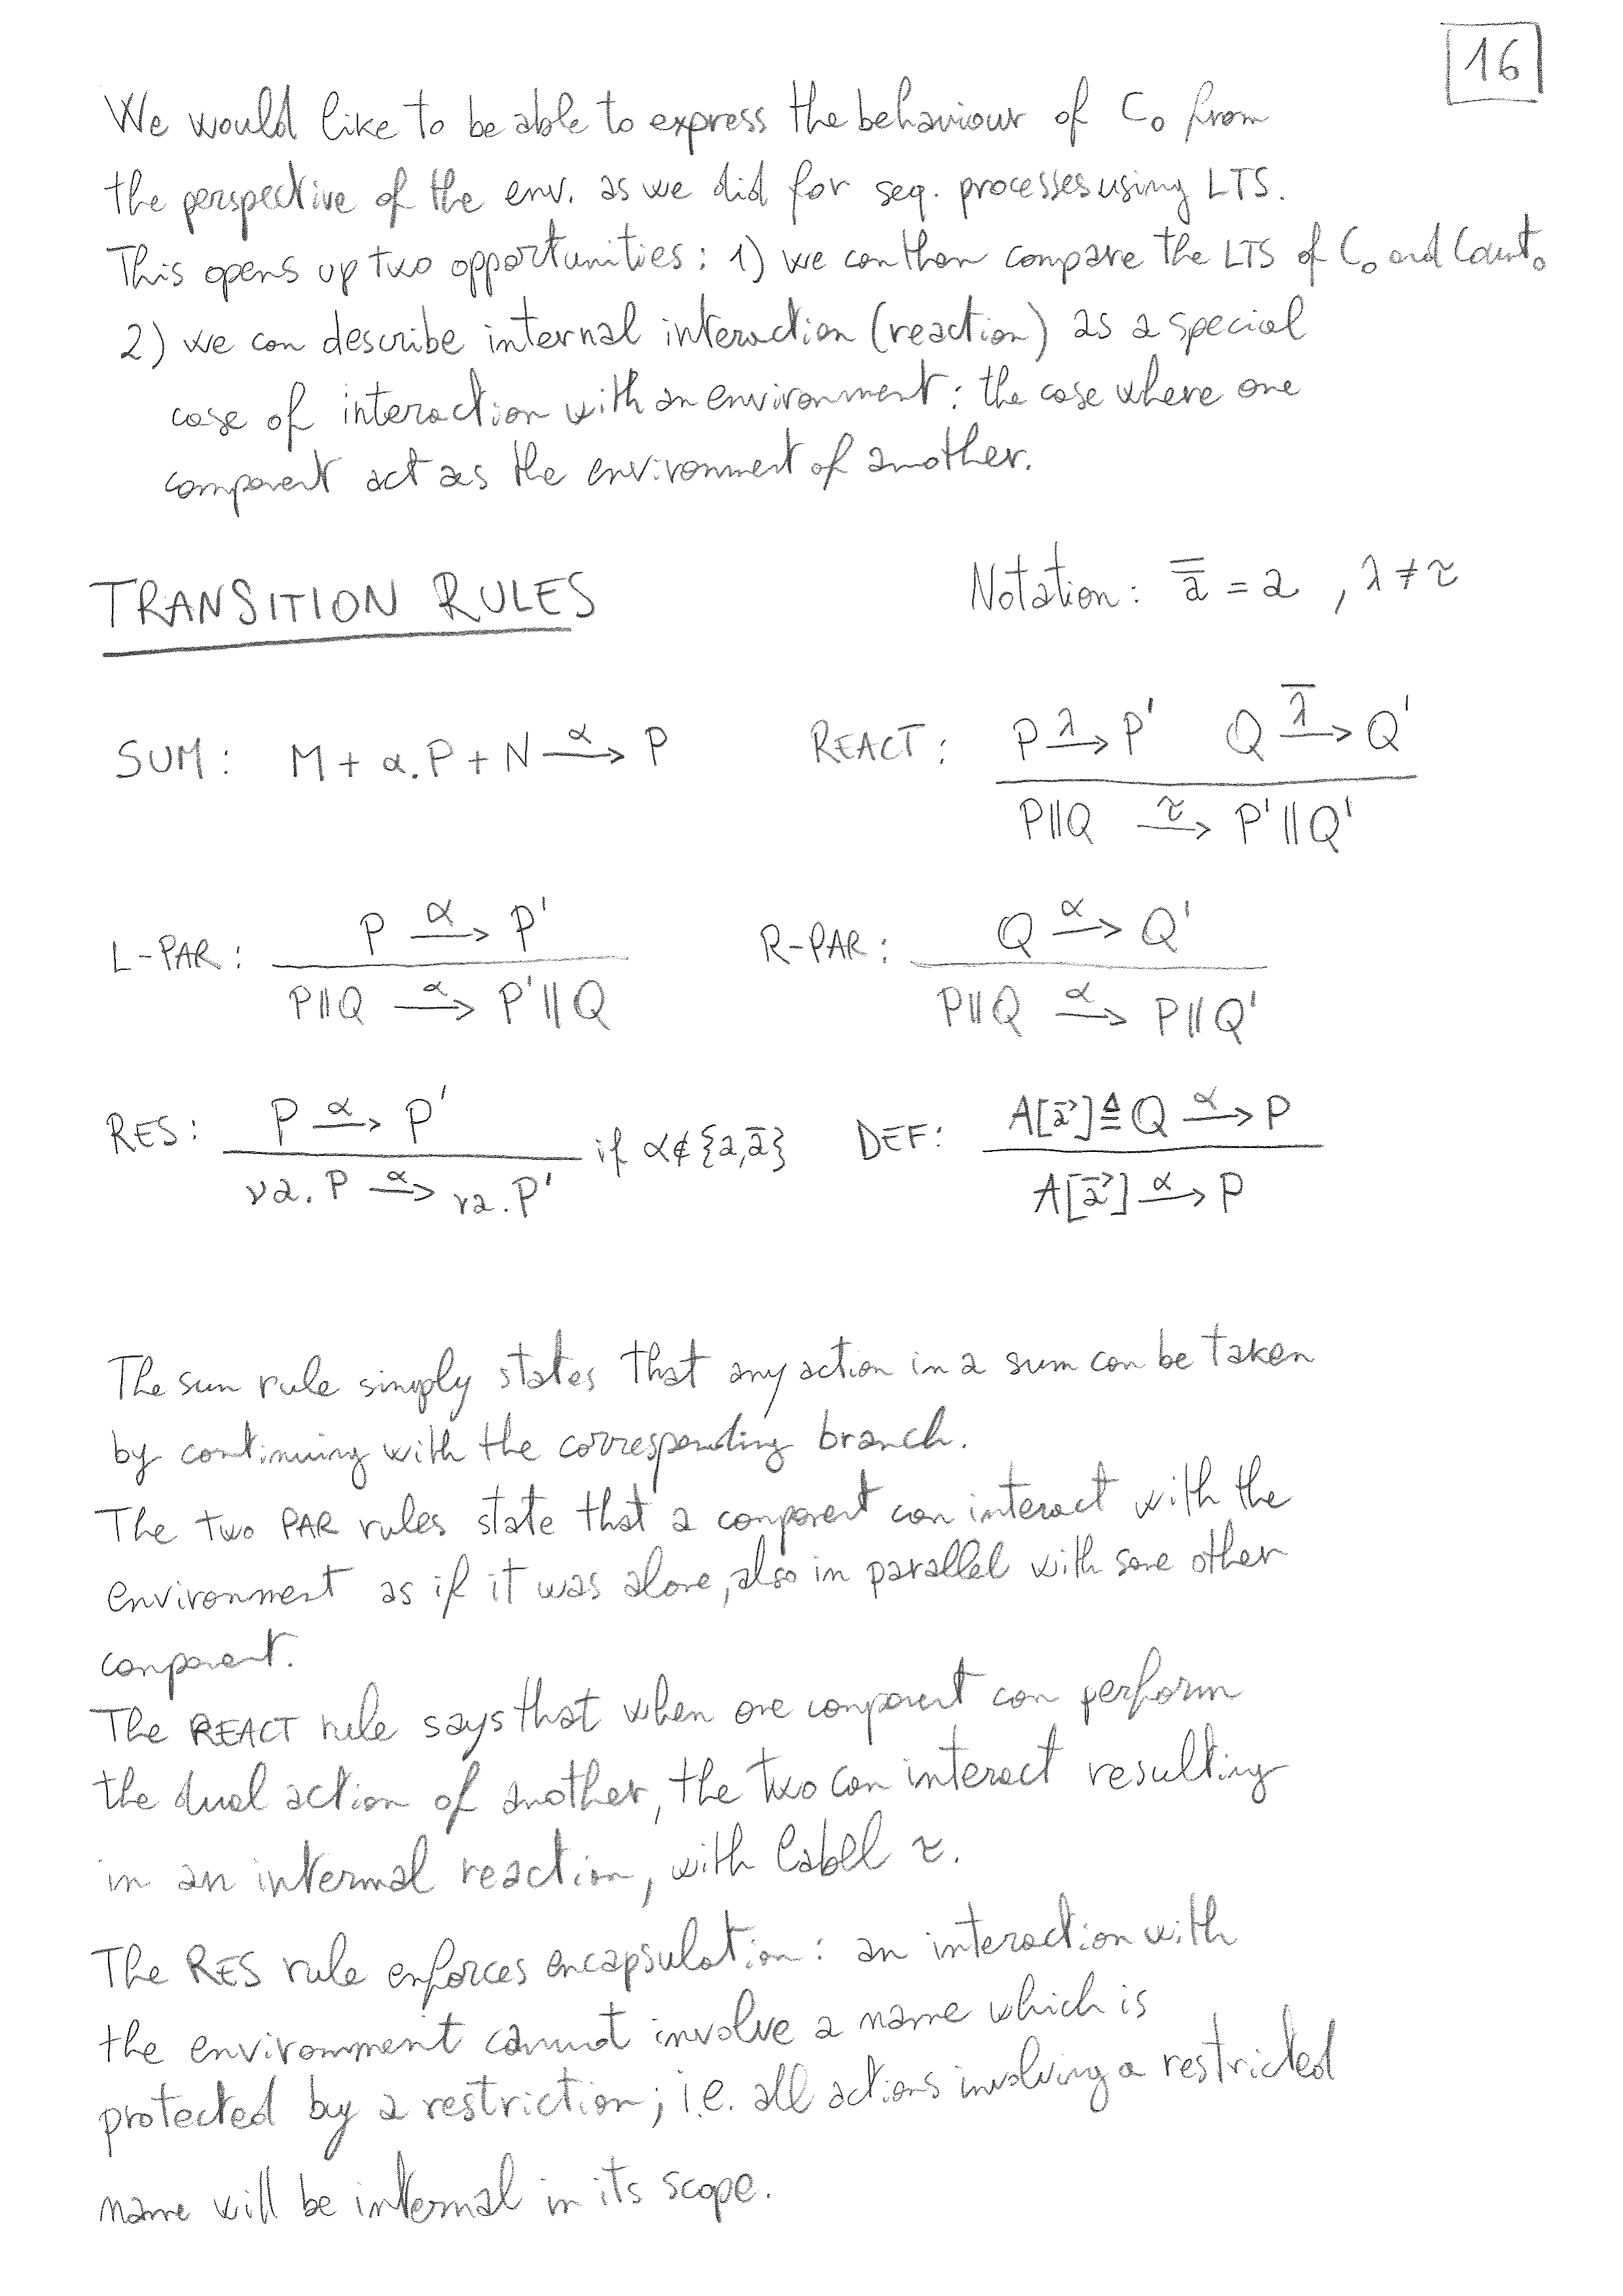 16
We would like to be able to express the behaviour of C₀ from
the perspective of the env. as we did for seq. processes using LTS.
This opens up two opportunities: 1) we can then compare the LTS of C₀ and Count₀
2) we can describe internal interaction (reaction) as a special
case of interaction with an environment: the case where one
component act as the environment of another.
TRANSITION RULES Notation: a̿ = a , λ ≠ τ
SUM: M + α.P + N —α→ P REACT: P —λ→ P' Q —λ̄→ Q'
P||Q —τ→ P'||Q'
L-PAR: P —α→ P' R-PAR: Q —α→ Q'
P||Q —α→ P'||Q P||Q —α→ P||Q'
RES: P —α→ P' if α∉{a,ā} DEF: A[a⃗]≜Q —α→ P
νa.P —α→ νa.P' A[a⃗] —α→ P
The sum rule simply states that any action in a sum can be taken
by continuing with the corresponding branch.
The two PAR rules state that a component can interact with the
environment as if it was alone, also in parallel with some other
component.
The REACT rule says that when one component can perform
the dual action of another, the two can interact resulting
in an internal reaction, with label τ.
The RES rule enforces encapsulation: an interaction with
the environment cannot involve a name which is
protected by a restriction; i.e. all actions involving a restricted
name will be internal in its scope.